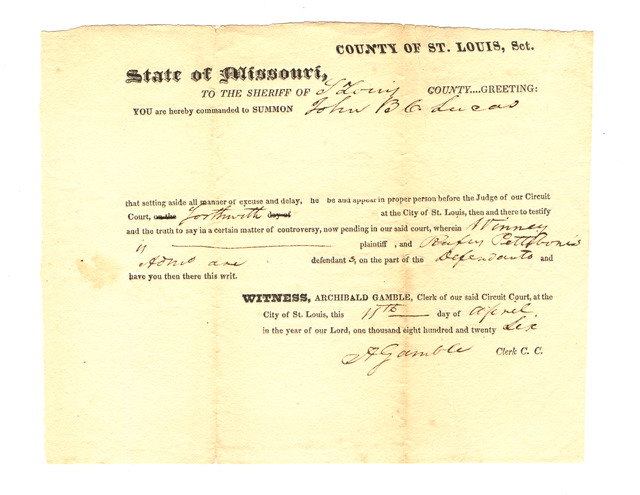 COUNTY OF ST. LOUIS, Sct.
State of Missouri,
TO THE SHERIFF OF St Louis COUNTY....GREETING:
YOU are hereby commanded to SUMMON John B C Lucas
that setting aside all manner of excuse and delay, he be and appear in proper person before the Judge of our Circuit
Court, on the Forthwith day of at the City of St. Louis, then and there to testify
and the truth to say in a certain matter of controversy, now pending in our said court, wherein Winney
is plaintiff, and Rufus Pettibones
Admrs are defendants, on the part of the Defendants and
have you then there this writ.
WITNESS, ARCHIBALD GAMBLE, Clerk of our said Circuit Court, at the
City of St. Louis, this 11th day of April
in the year of our Lord, one thousand eight hundred and twenty Six
A Gamble Clerk C. C.